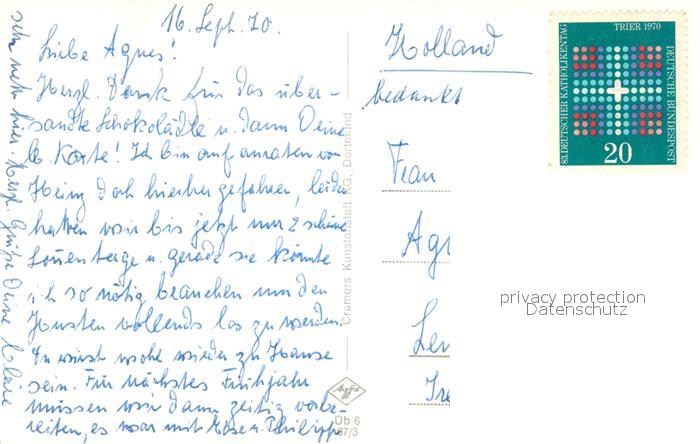 16. Sept. 70.
Liebe Agnes!
Herzl. Dank für das über-
sandte Schokolädle u. dann Deine
lb. Karte! Ich bin auf anraten von
Heinz doch hierher gefahren, leider
hatten wir bis jetzt nur 2 schöne
Sonnentage u. gerade sie könnte
ich so nötig brauchen um den
Husten vollends los zu werden.
Du wirst wohl wieder zu Hause
sein. Für nächstes Frühjahr
müssen wir dann zeitig vorbe-
reiten, es war mit u. Philipp
sehr nett hier. Herzl. Grüße Deine Claire
Cramers Kunstanstalt KG, Dortmund
Agfa
Üb 6
67/3
Holland
bedankt
Frau
Agr
Ler
Tre
83. DEUTSCHER KATHOLIKENTAG
TRIER 1970
DEUTSCHE BUNDESPOST
20
privacy protection
Datenschutz